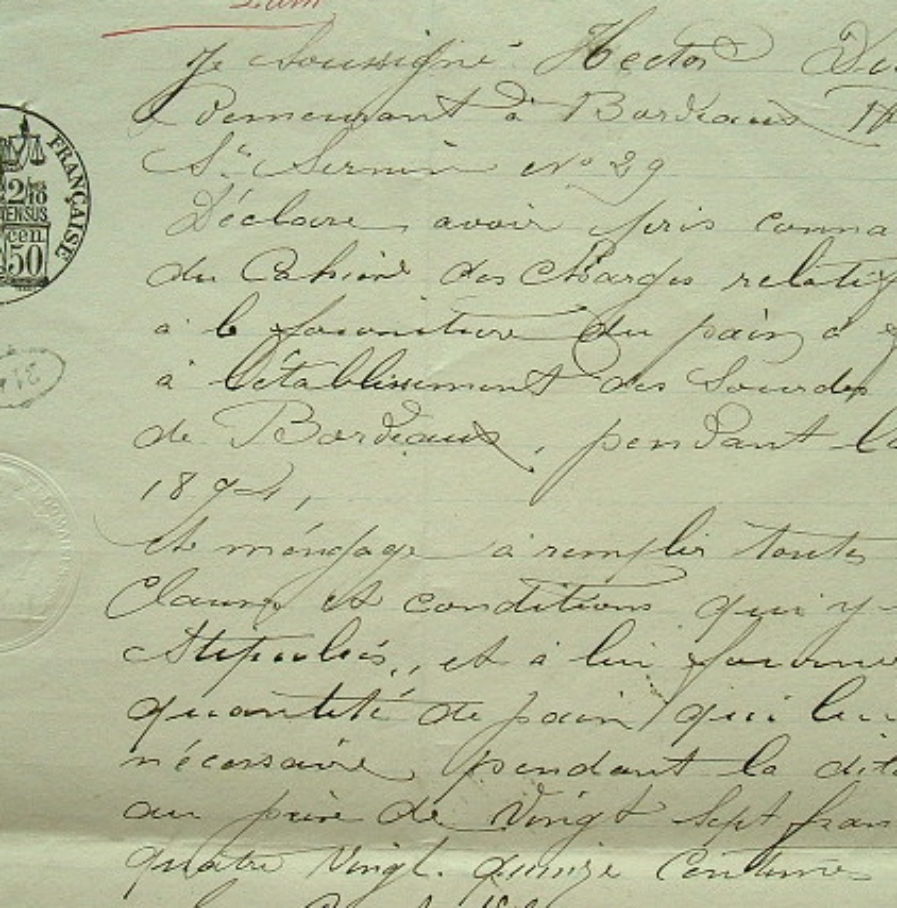 Je Soussigné Hector Du
Demeurant à Bordeaux
St Sernin No 29
FRANÇAISE
2/10
EN SUS
cen
50
Déclare avoir pris conna
du Cahier des Charges relatif
à la fourniture du pain à
à l'établissement des Sourdes
de Bordeaux, pendant l
1894,
et m'éngage à remplir toutes
Clauses et conditions qui y
Stipulées, et à lui fournir
quantité de pain qui leu
nécessaire pendant la dite
au prix de Vingt Sept fran
quatre Vingt. quinze Centimes